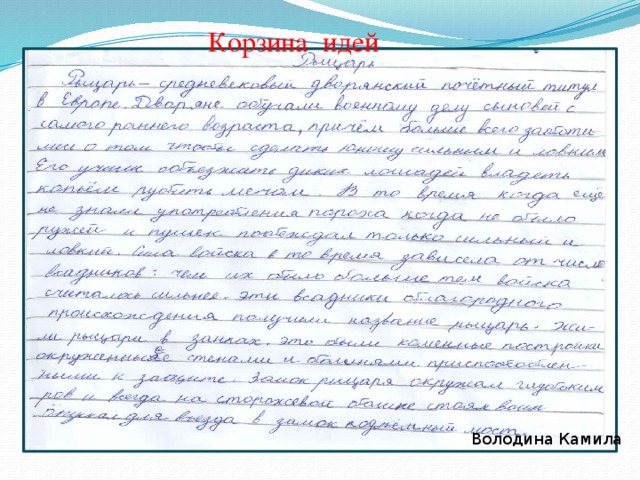 Корзина идей
Рыцарь
Рыцарь – средневековый дворянский почётный титул
в Европе. Дворяне обучали военному делу сыновей с
самого раннего возраста, причём больше всего заботи
лись о том чтобы сделать юношу сильным и ловким
Его учили объезжать диких лошадей владеть
копьём рубить мечом. В то время когда ещё
не знали употребления пороха когда не было
ружей и пушек побеждал только сильный и
ловкий. Сила войска в то время зависела от числа
всадников: чем их было больше тем войска
считалось сильнее. Эти всадники благородного
происхождения получили название рыцарь. Жи-
ли рыцари в замках. Это были каменные постройки
окруженные стенами и башнями приспособлен-
ными к защите. Замок рыцаря окружал глубоким
ров и всегда на сторожевой башне стоял воин
опускал для въезда в замок подъёмный мост.
Володина Камила